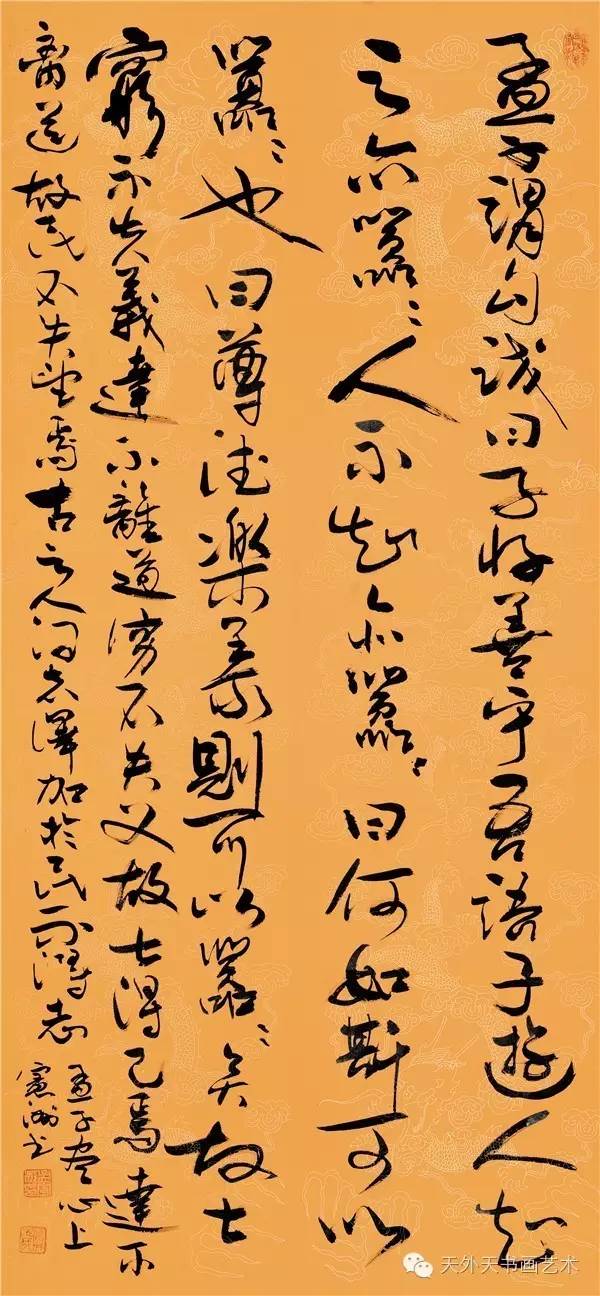 孟子謂勾践曰子好善乎吾語子遊人知
之亦囂〻人不知亦囂〻曰何如斯可以
囂〻也曰尊德樂義則可以囂〻矣故士
窮不失義達不離道窮不失义故士得己焉達不
離道故民不失望焉古之人得志澤加於民不得志
孟子尽心上
憲洲书
天外天书画艺术